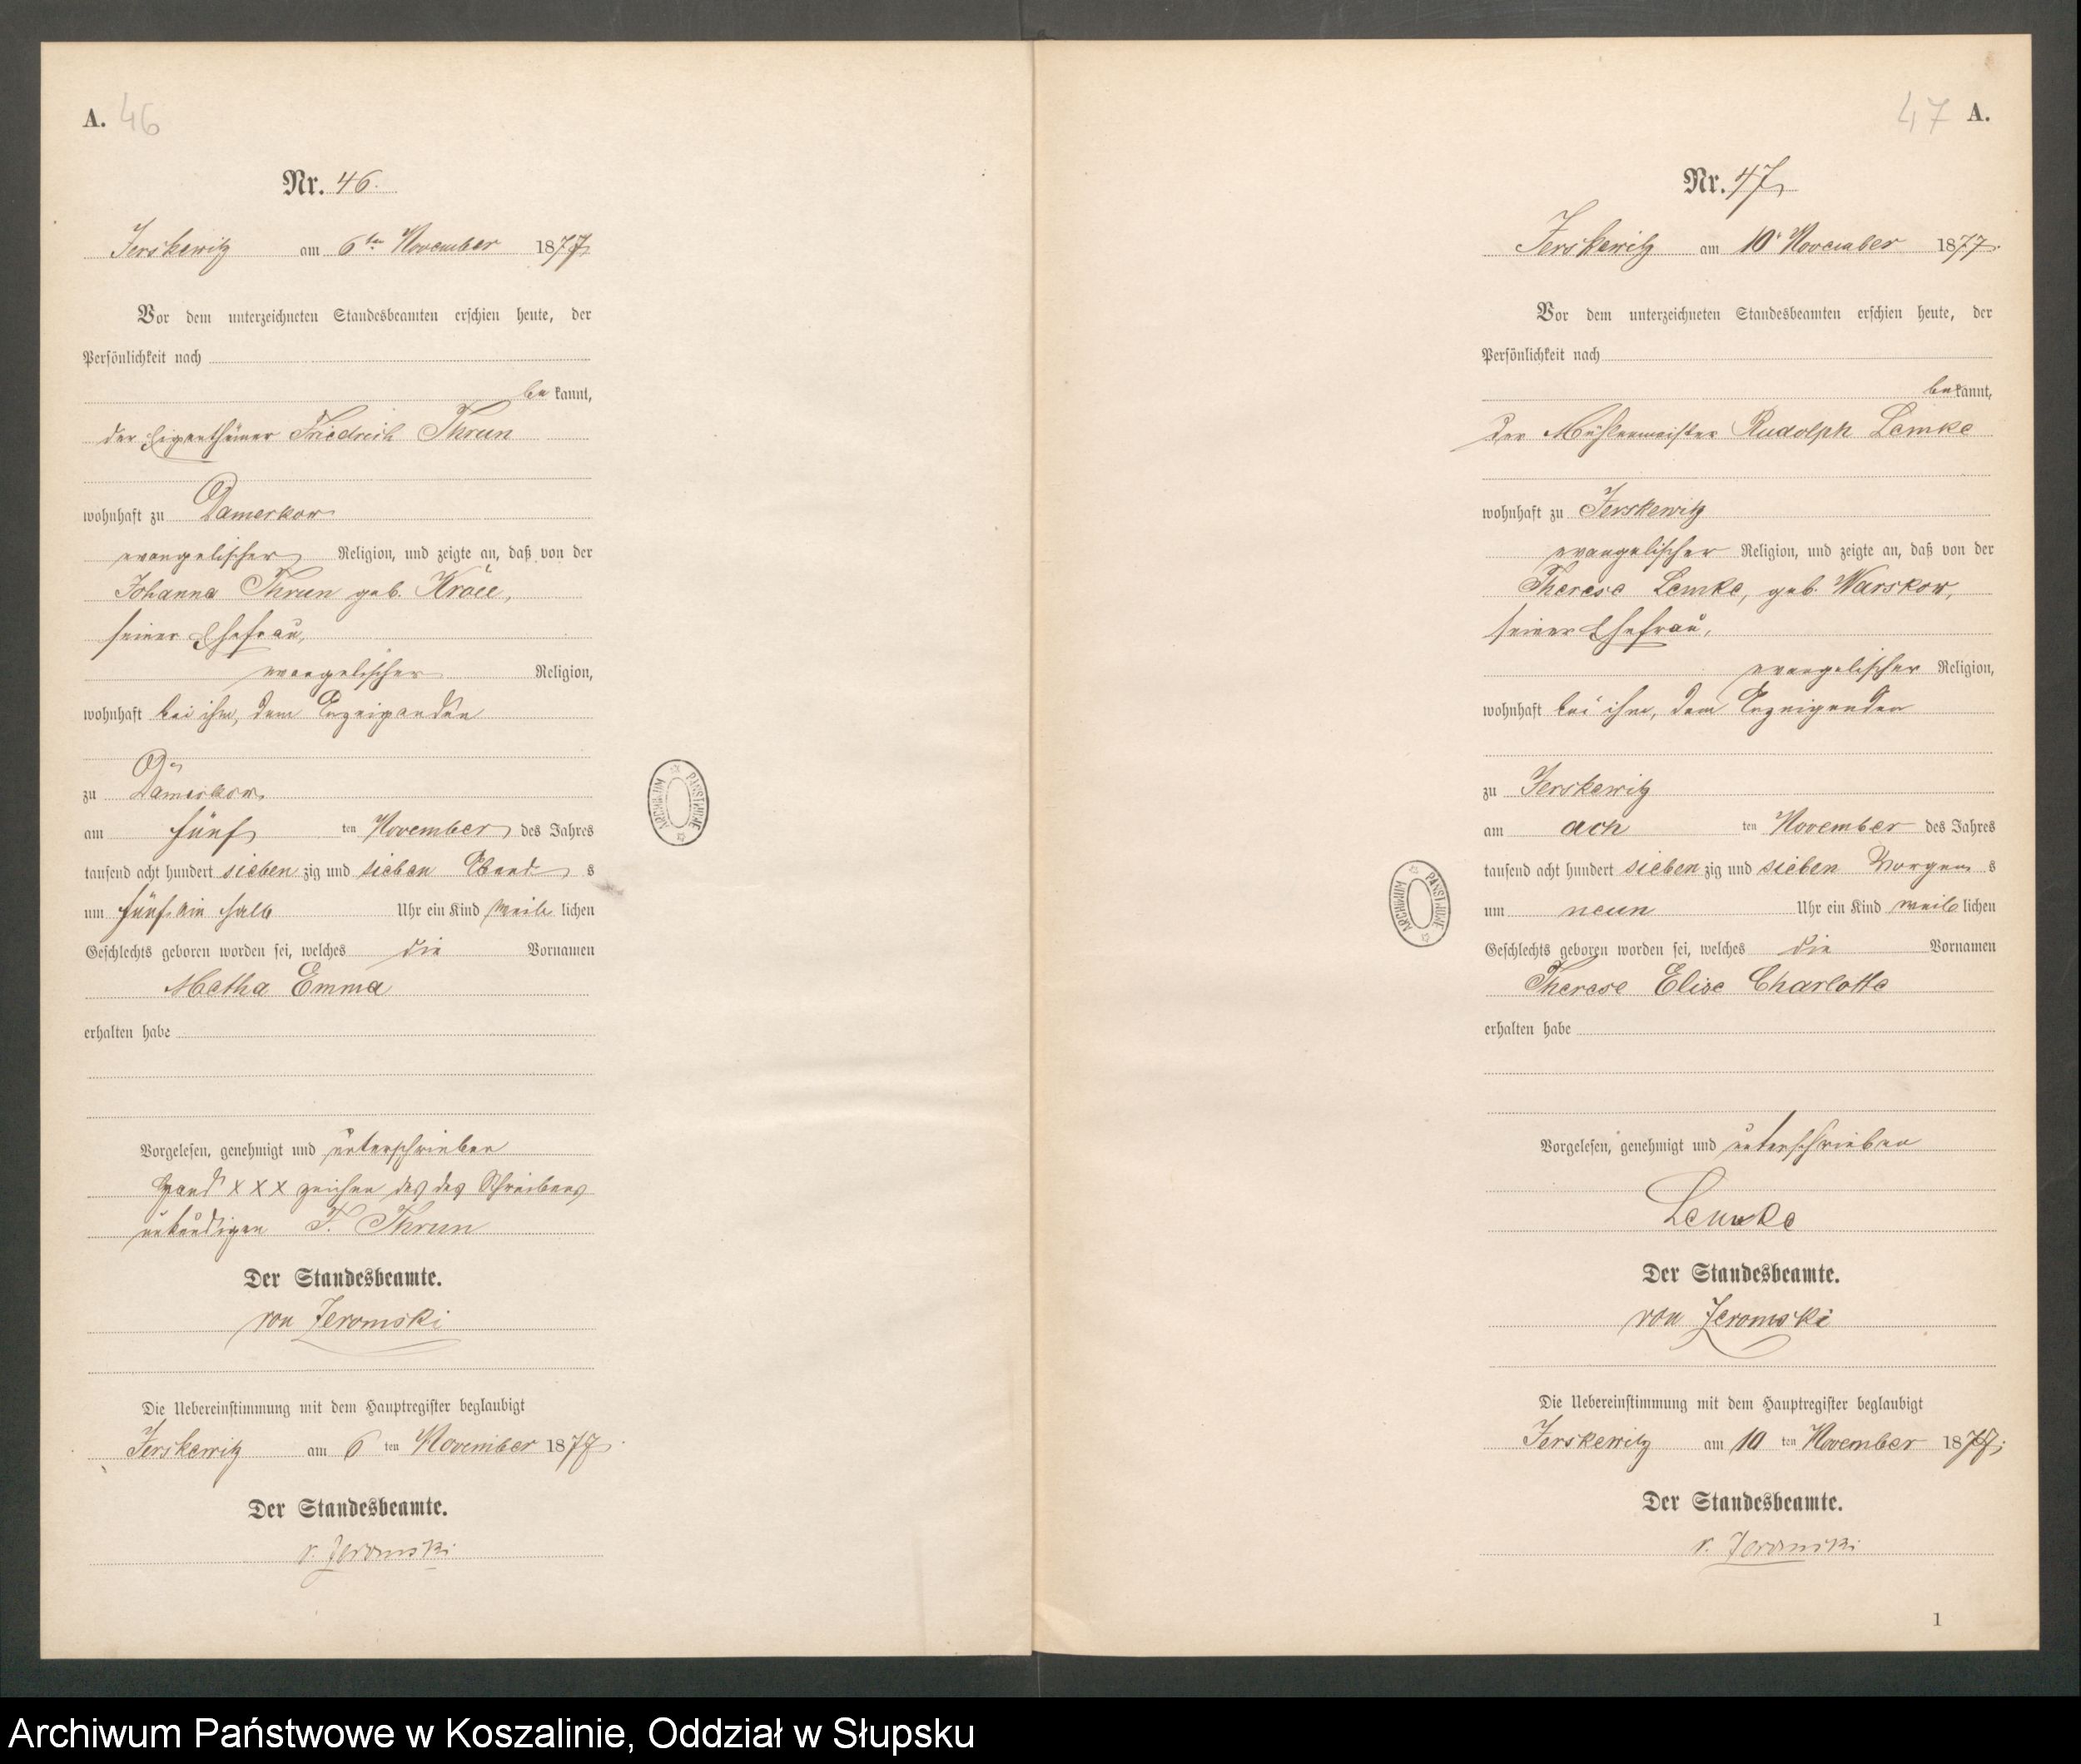 A. 46
Nr. 46.
Jerskewitz am 6ten November 1877
Vor dem unterzeichneten Standesbeamten erschien heute, der
Persönlichkeit nach
be kannt,
der Eigenthümer Friedrich Thrun
wohnhaft zu Damerkow
evangelischer Religion, und zeigte an, daß von der
Johanna Thrun geb. Kröll,
seiner Ehefrau,
evangelischer Religion,
wohnhaft bei ihm, dem Anzeigenden
zu Damerkow,
am fünf ten November des Jahres
tausend acht hundert sieben zig und sieben Abend s
um fünf ein halb Uhr ein Kind weib lichen
Geschlechts geboren worden sei, welches die Vornamen
Metha Emma
erhalten habe
Vorgelesen, genehmigt und unterschrieben
Hand x x x zeichen des des Schreibens
unkundigen F. Thrun
Der Standesbeamte.
von Jeromski
Die Uebereinstimmung mit dem Hauptregister beglaubigt
Jerskewitz am 6 ten November 1877
Der Standesbeamte.
v. Jeromski
47 A.
Nr. 47
Jerskewitz am 10. November 1877.
Vor dem unterzeichneten Standesbeamten erschien heute, der
Persönlichkeit nach
be kannt,
der Mühlenmeister Rudolph Lemke
wohnhaft zu Jerskewitz
evangelischer Religion, und zeigte an, daß von der
Therese Lemke, geb. Warskow,
seiner Ehefrau,
evangelischer Religion,
wohnhaft bei ihm, dem Anzeigenden
zu Jerskewitz
am ach ten November des Jahres
tausend acht hundert sieben zig und sieben Morgen s
um neun Uhr ein Kind weib lichen
Geschlechts geboren worden sei, welches die Vornamen
Therese Elise Charlotte
erhalten habe
Vorgelesen, genehmigt und unterschrieben
Lemke
Der Standesbeamte.
von Jeromski
Die Uebereinstimmung mit dem Hauptregister beglaubigt
Jerskewitz am 10 ten November 1877.
Der Standesbeamte.
v. Jeromski
1
ARCHIWUM PAŃSTWOWE
ARCHIWUM PAŃSTWOWE
Archiwum Państwowe w Koszalinie, Oddział w Słupsku